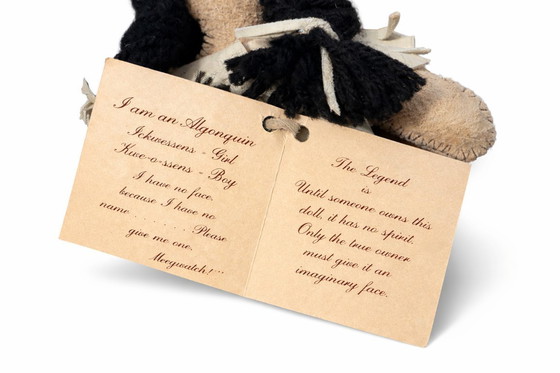 I am an Algonquin
Ickwessens - Girl
Kwe-o-ssens - Boy
I have no face,
because I have no
name . . . . . . . . Please
give me one.
Meegwatch!...
The Legend
is
Until someone owns this
doll, it has no spirit.
Only the true owner
must give it an
imaginary face.